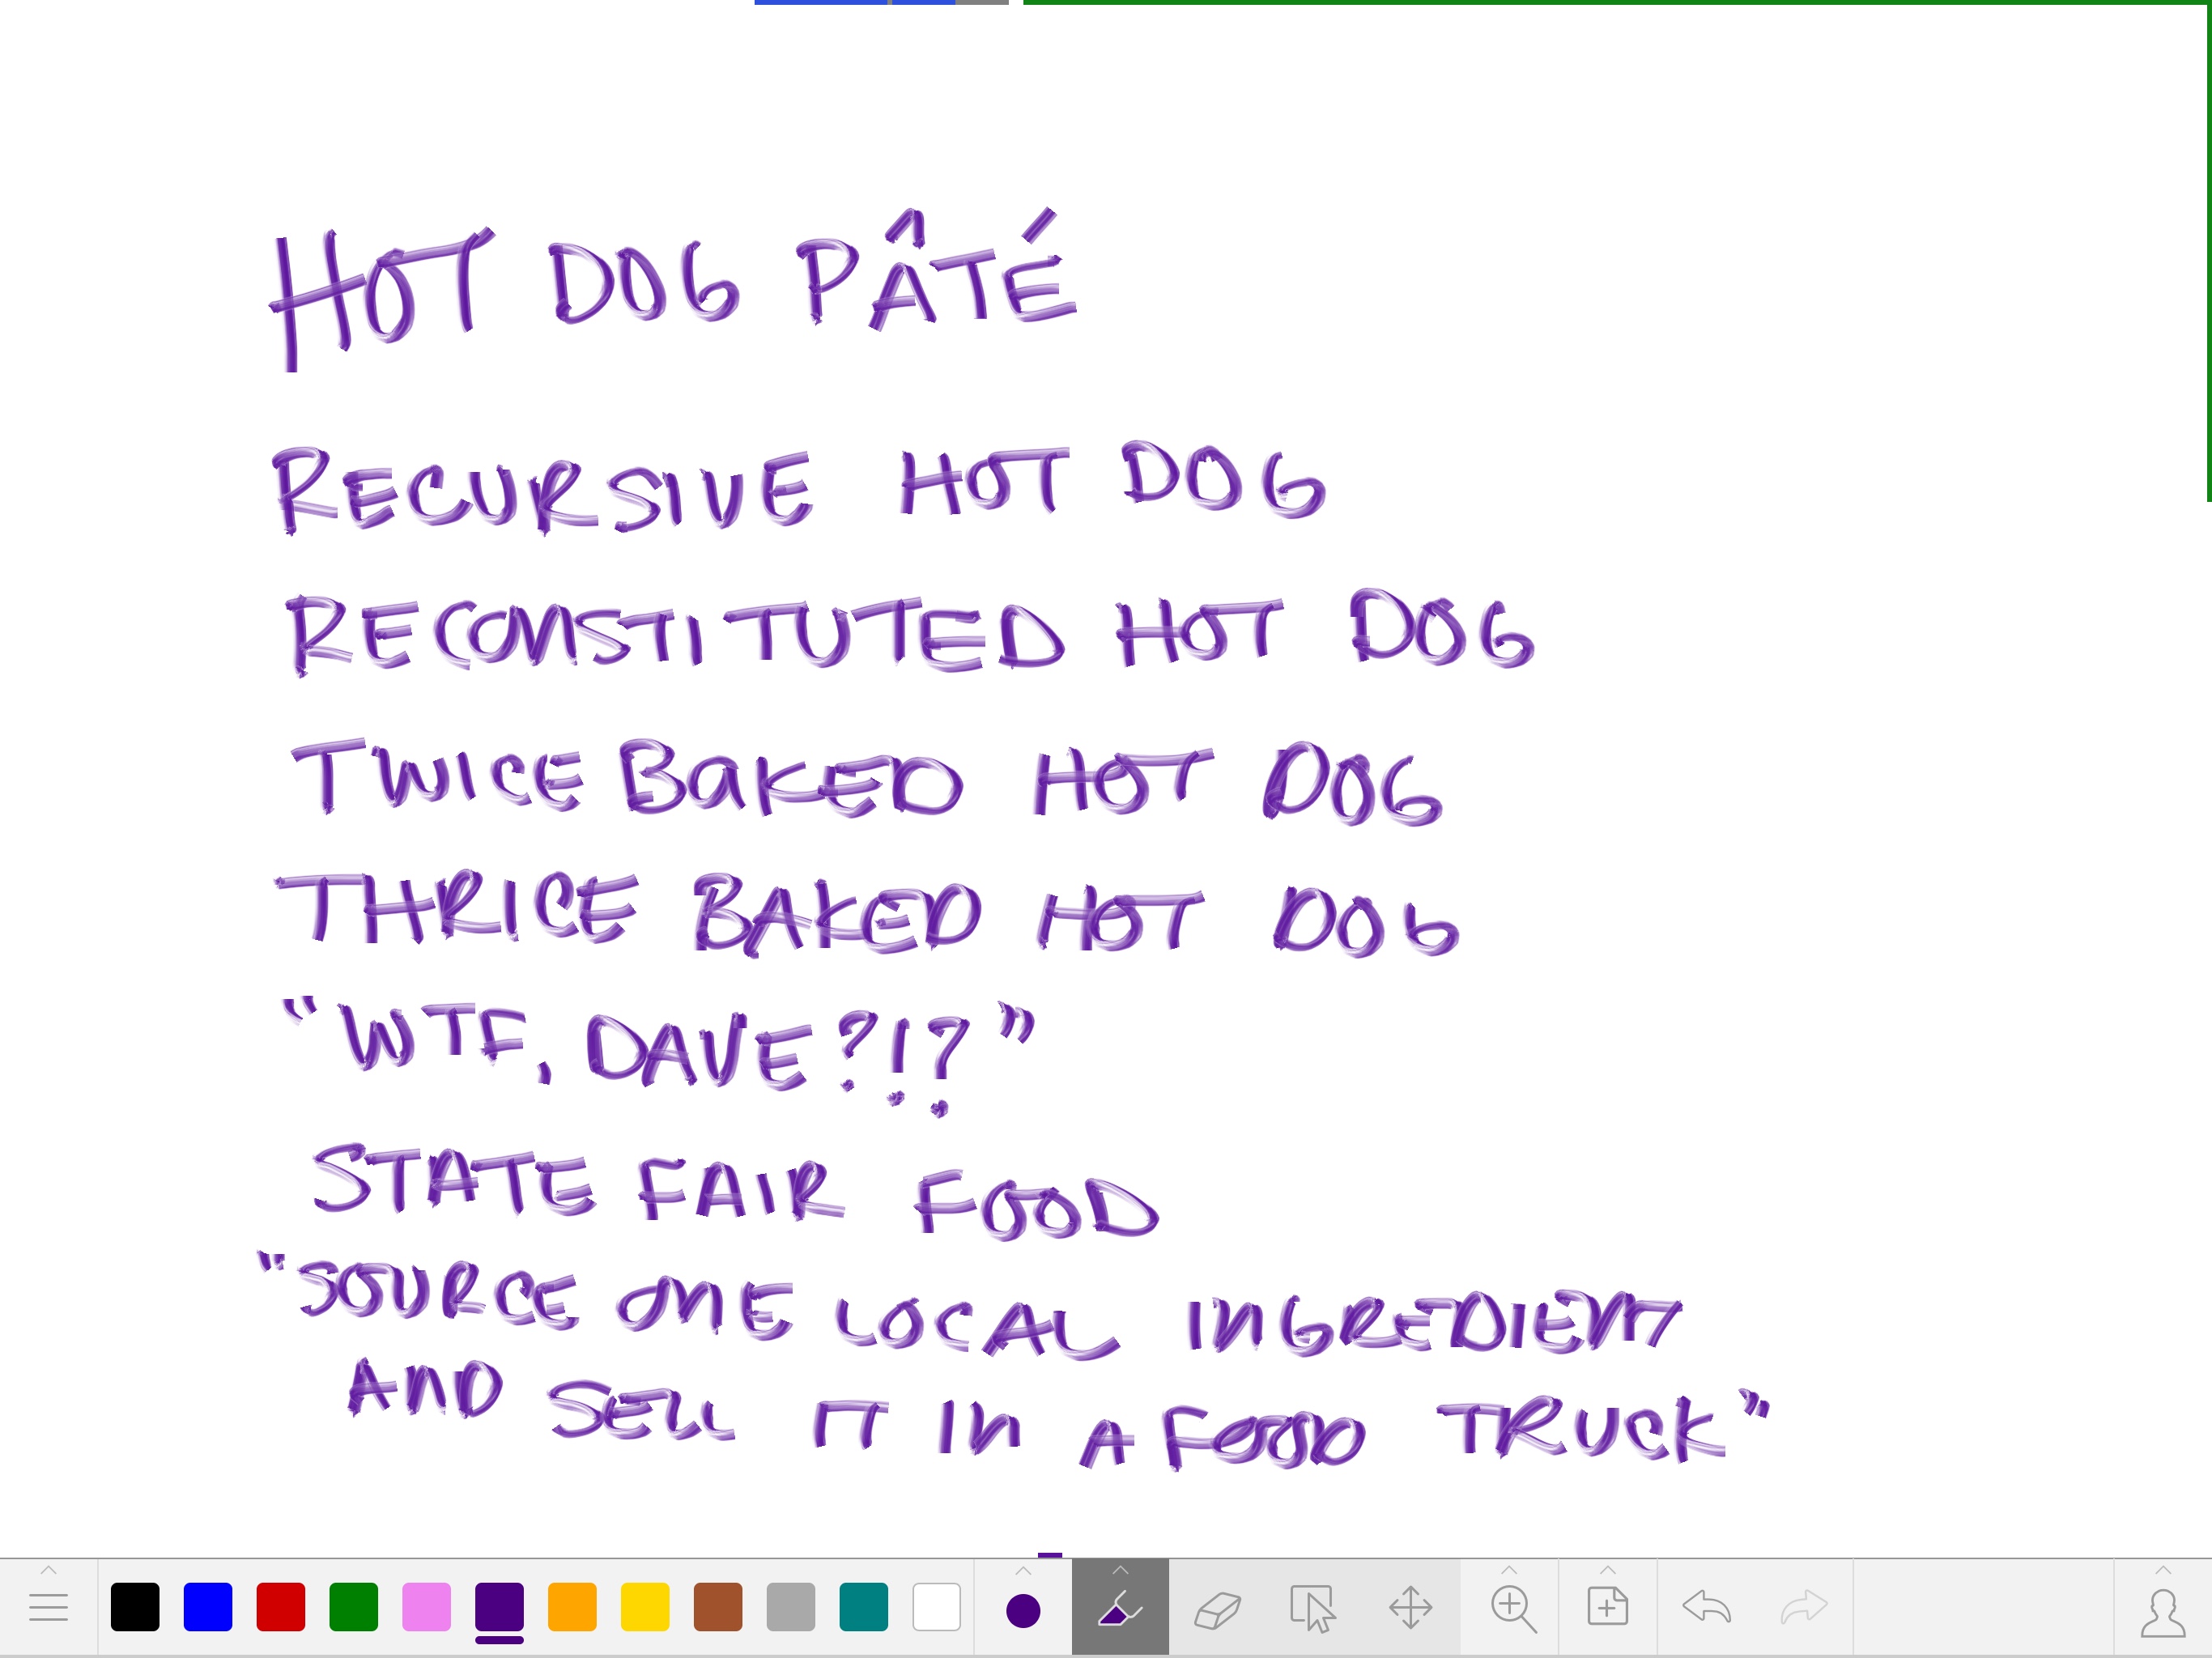 HOT DOG PÂTÉ
RECURSIVE HOT DOG
RECONSTITUTED HOT DOG
TWICE BAKED HOT DOG
THRICE BAKED HOT DOG
“WTF, DAVE?!?”
STATE FAIR FOOD
“SOURCE ONE LOCAL INGREDIENT
AND SELL IT IN A FOOD TRUCK”